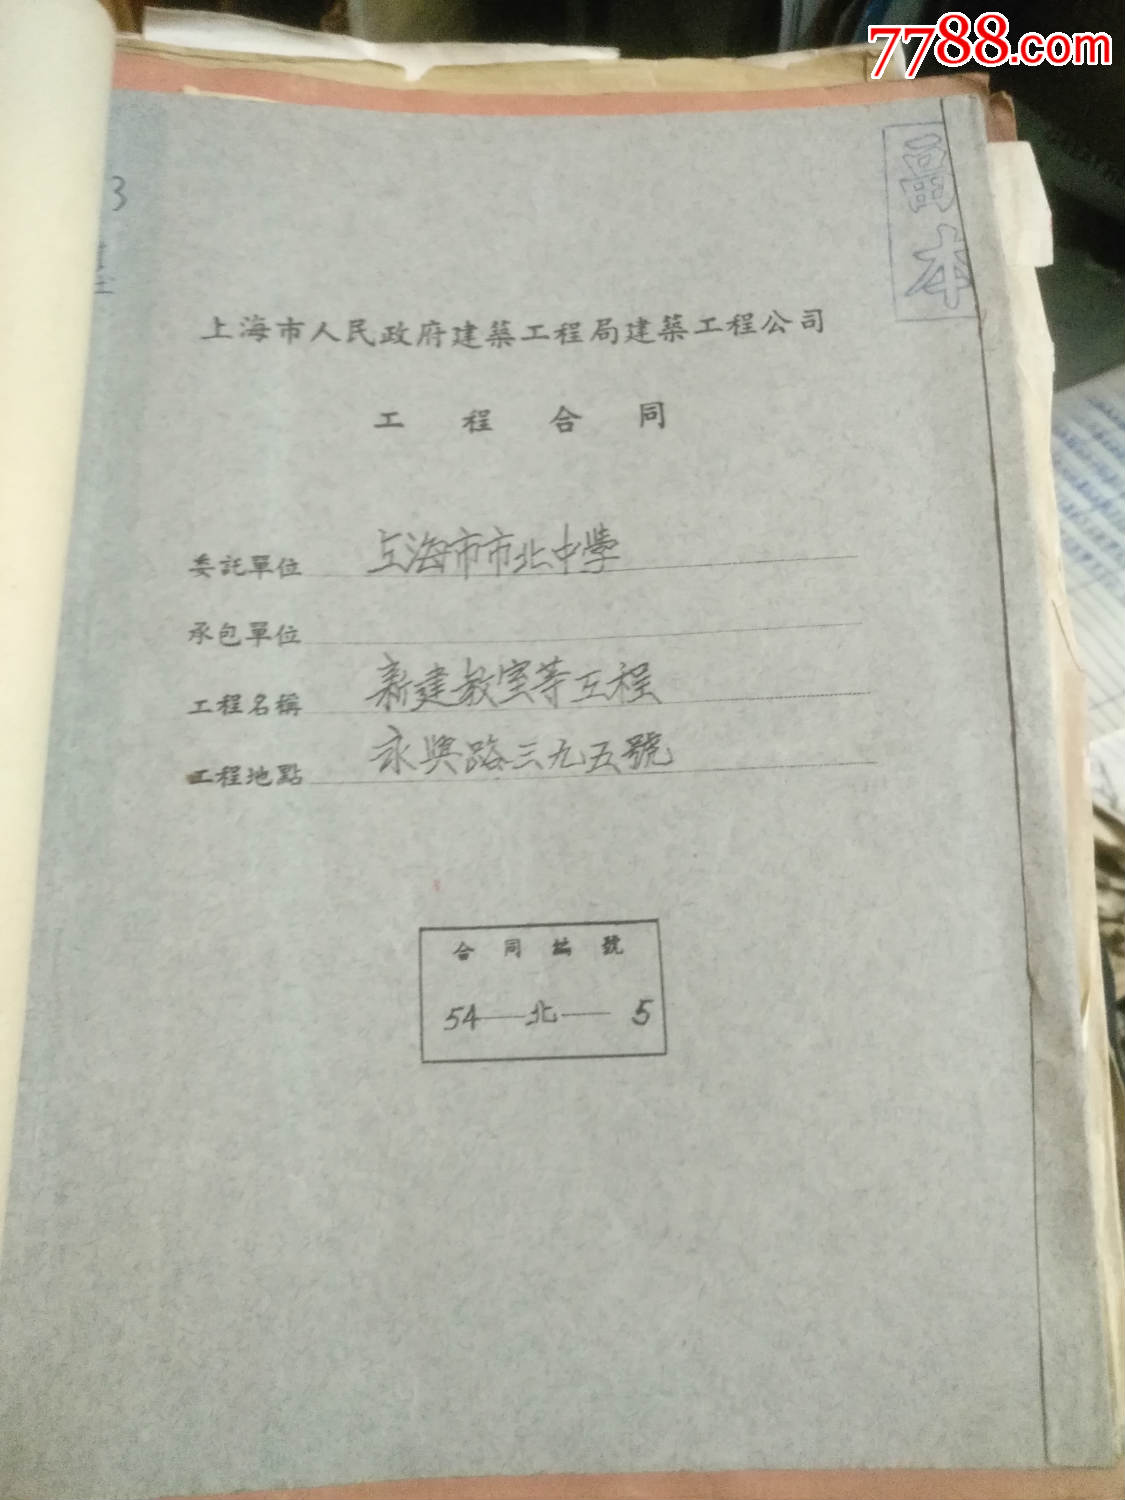 7788.com
副本
3
上海市人民政府建築工程局建築工程公司
工程合同
委託單位 上海市市北中學
承包單位
工程名稱 新建教室等工程
工程地點 永興路三九五號
合同編號
54—北—5